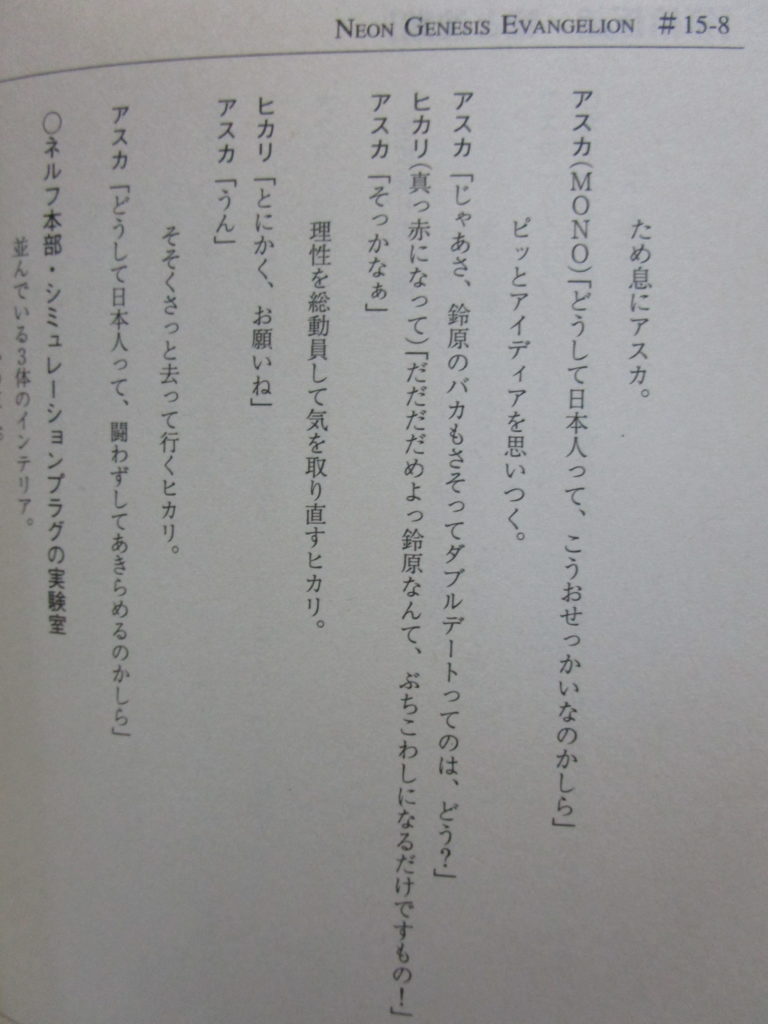 NEON GENESIS EVANGELION #15-8
ため息にアスカ。
アスカ(MONO)「どうして日本人って、こうおせっかいなのかしら」
ピッとアイディアを思いつく。
アスカ「じゃあさ、鈴原のバカもさそってダブルデートってのは、どう?」
ヒカリ(真っ赤になって)「だだだだめよっ鈴原なんて、ぶちこわしになるだけですもの!」
アスカ「そっかなぁ」
理性を総動員して気を取り直すヒカリ。
ヒカリ「とにかく、お願いね」
アスカ「うん」
そそくさっと去って行くヒカリ。
アスカ「どうして日本人って、闘わずしてあきらめるのかしら」
○ネルフ本部・シミュレーションプラグの実験室
並んでいる3体のインテリア。